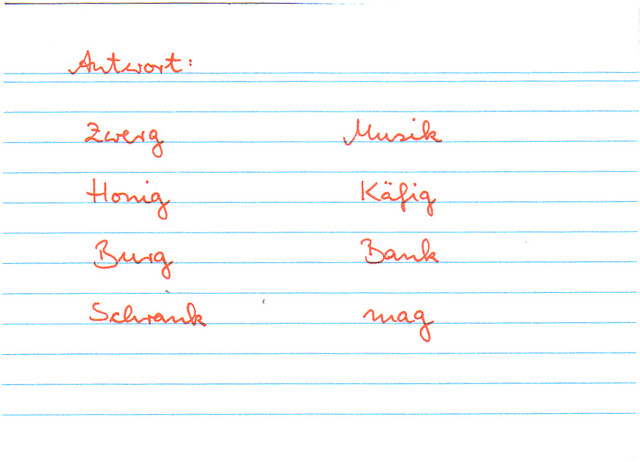 Antwort:
Zwerg Musik
Honig Käfig
Burg Bank
Schrank mag